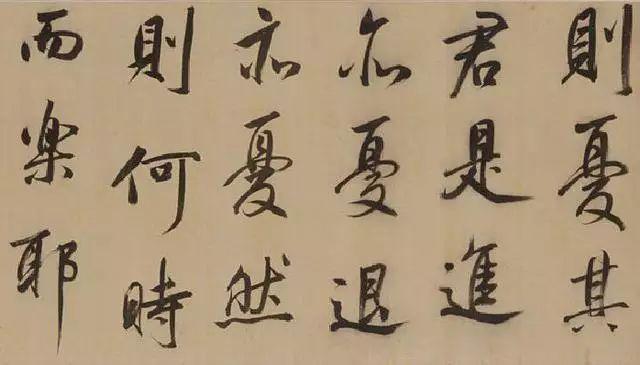 則憂其
君是進
亦憂退
亦憂然
則何時
而樂耶